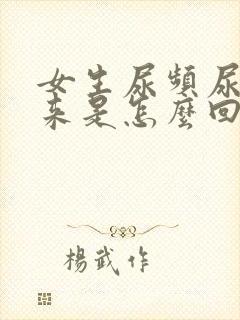 女生尿頻尿
來是怎麼回
楊武作